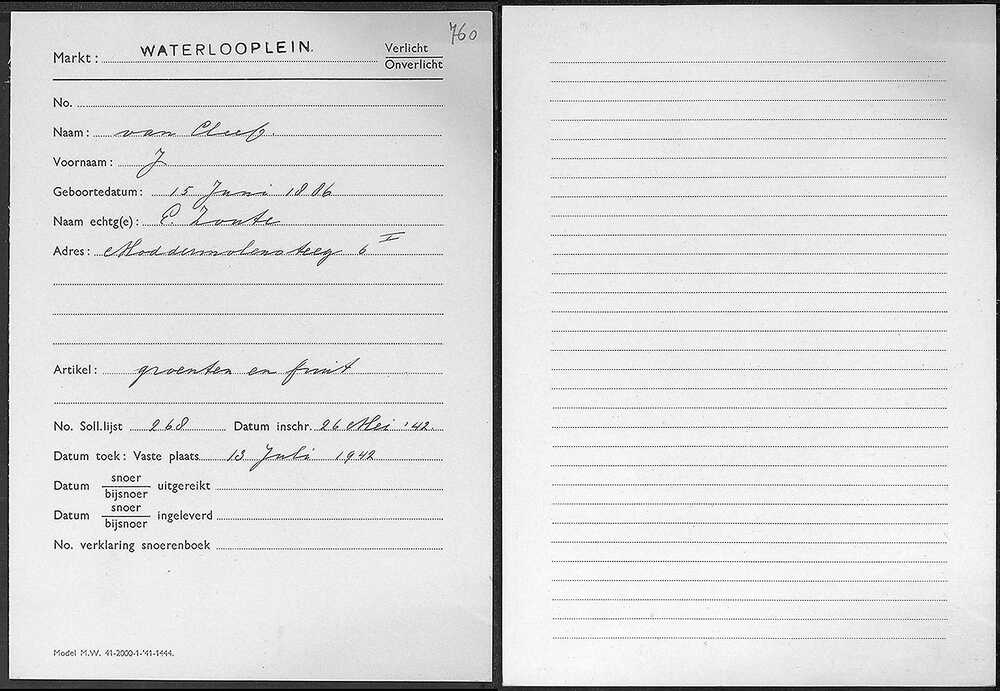 760
Markt: WATERLOOPLEIN.
Verlicht
Onverlicht
No.
Naam: van Cleef.
Voornaam: J
Geboortedatum: 15 Juni 1886
Naam echtg(e): E. Zoute
Adres: Moddermolensteeg 6 I
Artikel: groenten en fruit
No. Soll.lijst 268 Datum inschr. 26 Mei '42.
Datum toek: Vaste plaats 13 Juli 1942
Datum snoer/bijsnoer uitgereikt
Datum snoer/bijsnoer ingeleverd
No. verklaring snoerenboek
Model M.W. 41-2000-1-'41-1444.